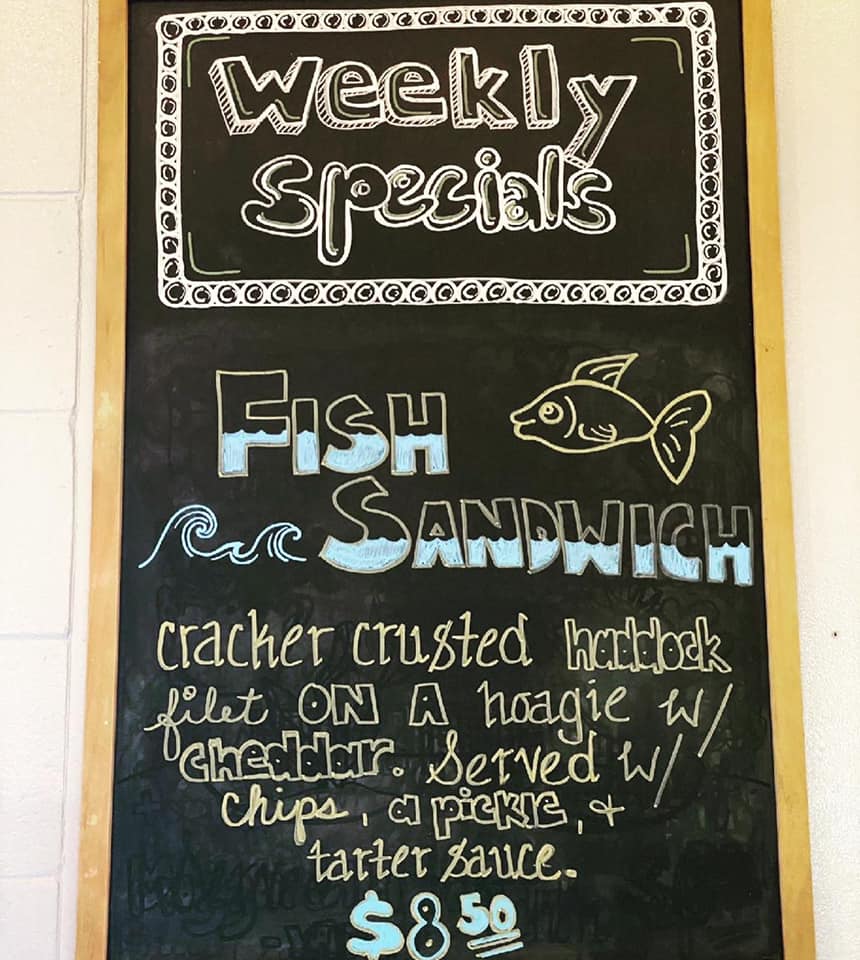 Weekly
Specials
FISH
SANDWICH
cracker crusted haddock
filet ON A hoagie w/
cheddar. Served w/
chips, a pickle, +
tarter sauce.
$8 50